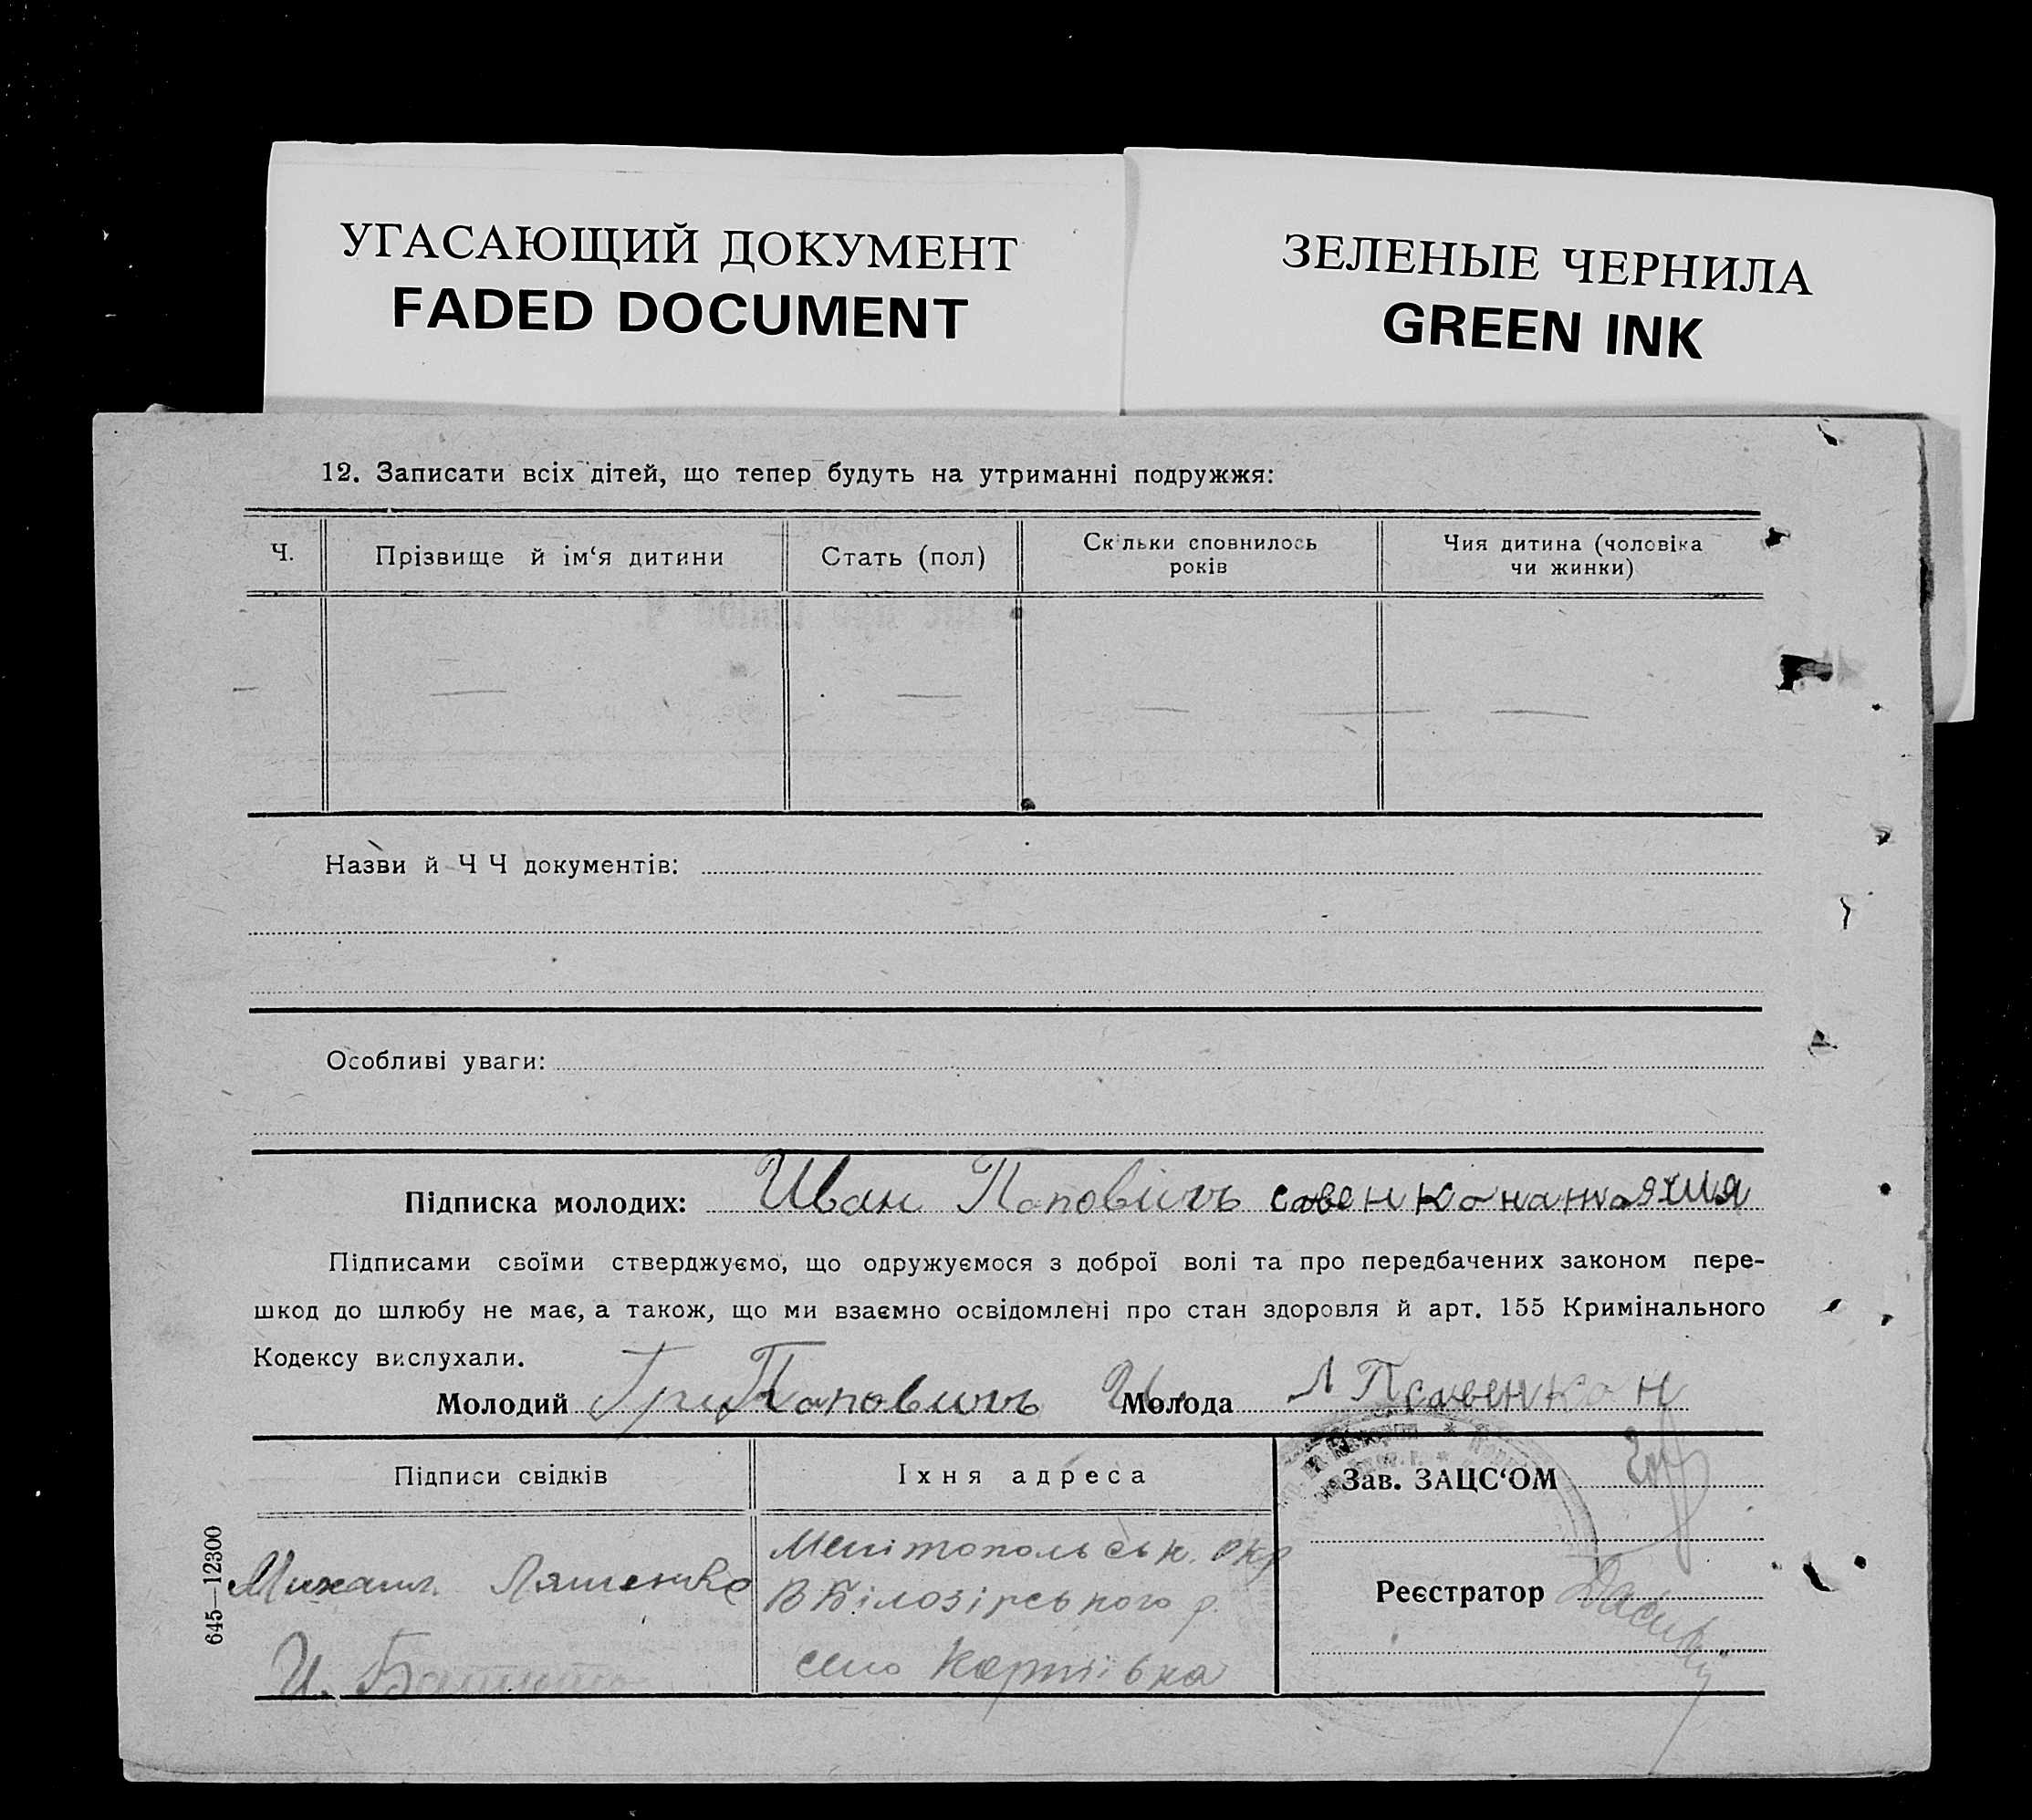 УГАСАЮЩИЙ ДОКУМЕНТ
FADED DOCUMENT
ЗЕЛЕНЫЕ ЧЕРНИЛА
GREEN INK
12. Записати всіх дітей, що тепер будуть на утриманні подружжя:
Ч.
Прізвище й ім‘я дитини
Стать (пол)
Скільки сповнилось
років
Чия дитина (чоловіка
чи жинки)
Назви й Ч Ч документів:
Особливі уваги:
Підписка молодих: Иван Поповичъ савенко наталия
Підписами своїми стверджуємо, що одружуємося з доброї волі та про передбачених законом пере-
шкод до шлюбу не має, а також, що ми взаємно освідомлені про стан здоровля й арт. 155 Кримінального
Кодексу вислухали.
Молодий Поповичъ Молода савенко н
Підписи свідків
Їхня адреса
Зав. ЗАЦС‘ОМ
Михаил Ляшенко
Мелітопольськ. окр
В Білозірського р.
село
Реєстратор
И.
645—12300